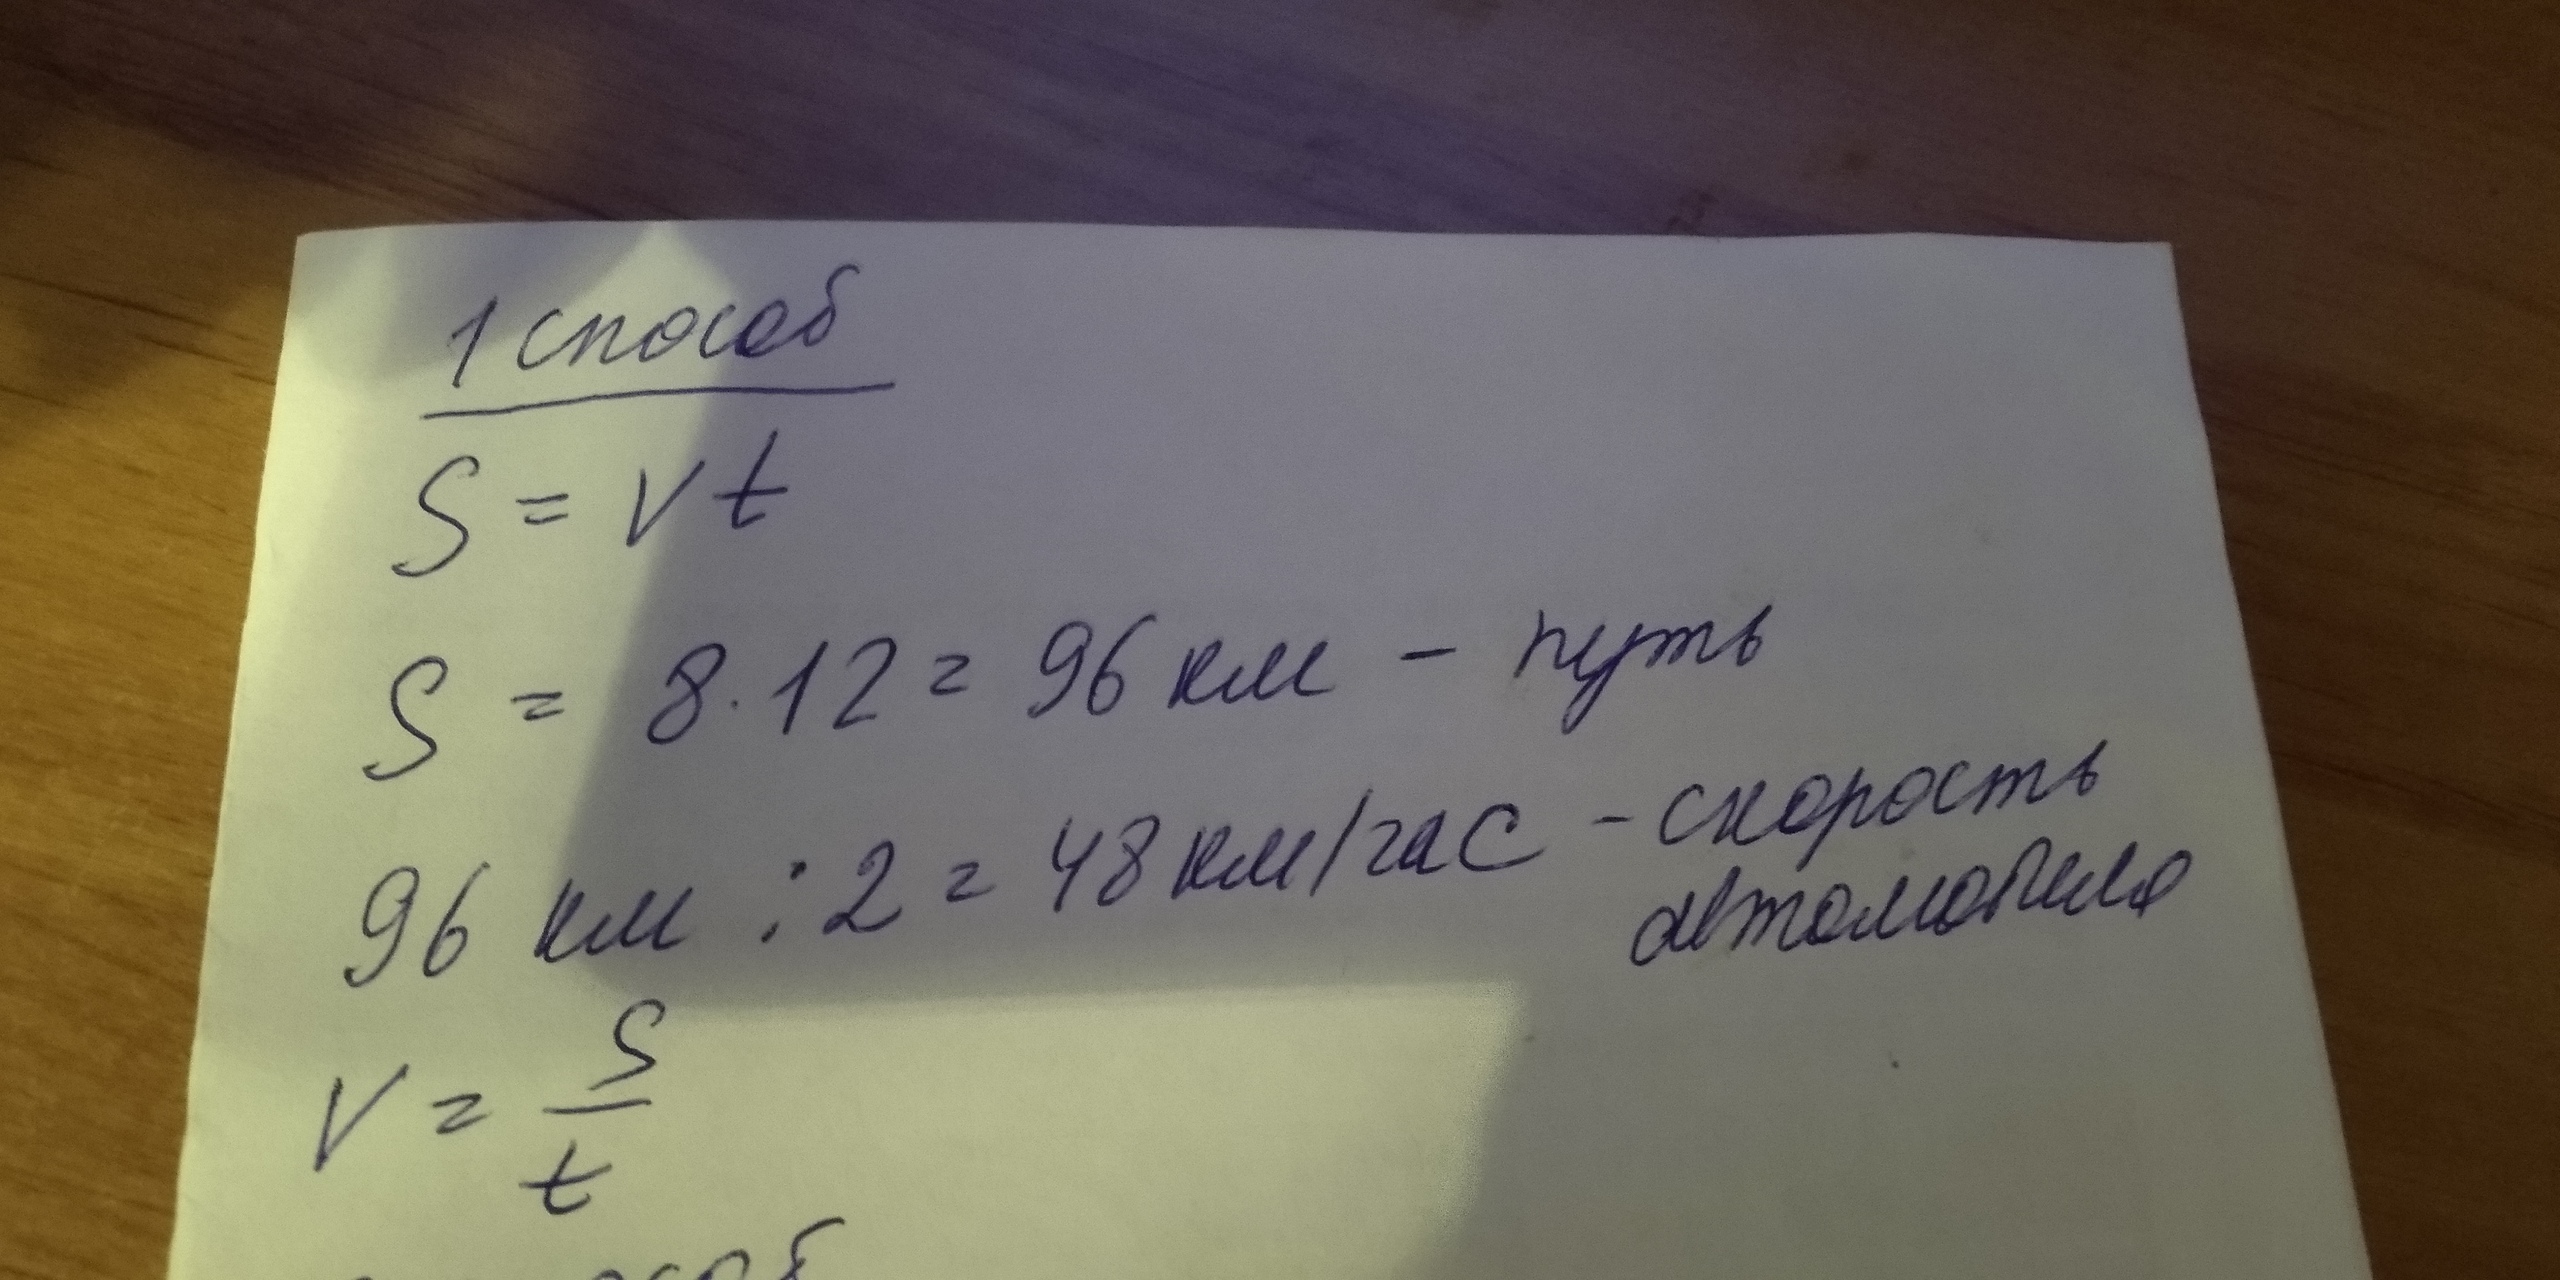 1 способ
S = v t
S = 8 · 12 = 96 км - путь
96 км : 2 = 48 км/час - скорость
автомобиля
V = S/t